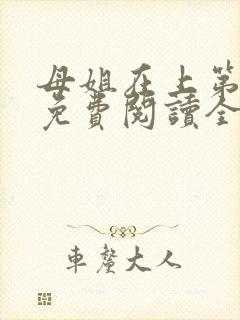 母姐在上第
免費閱讀全
車釐大人